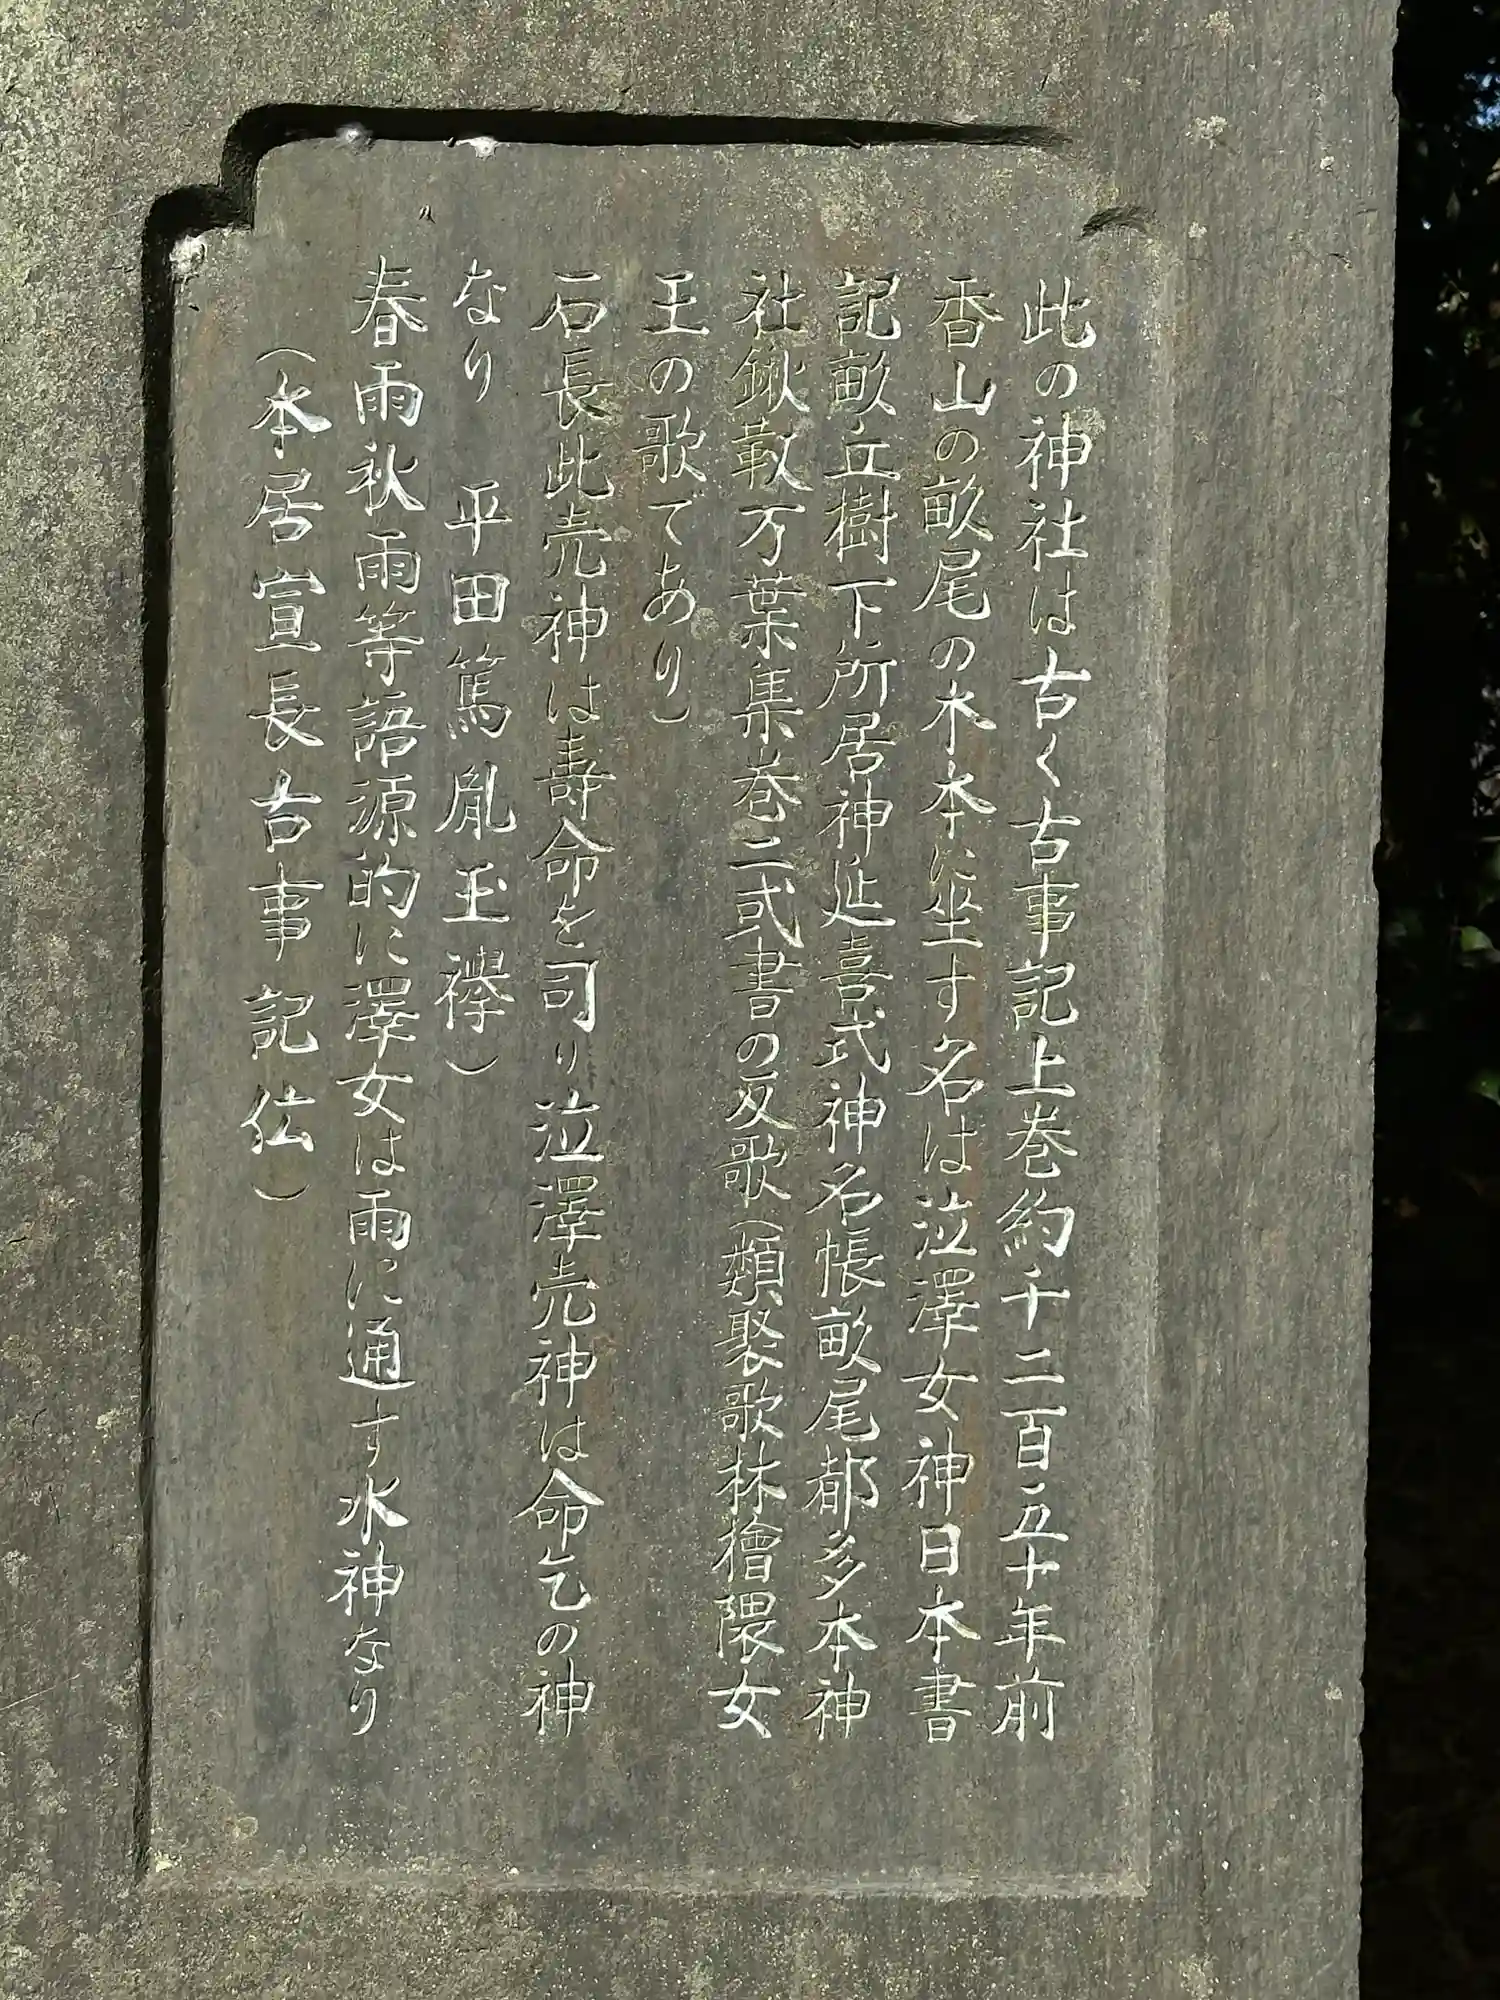 此の神社は古く古事記上巻約千二百五十年前
香山の畝尾の木本に坐す名は泣澤女神日本書
記畝丘樹下所居神延喜式神名帳畝尾都多本神
社鍬靫万葉集巻二或書の反歌（類聚歌林檜隈女
王の歌であり）
石長此売神は壽命を司り泣澤売神は命乞の神
なり　平田篤胤玉襷）
春雨秋雨等語源的に澤女は雨に通す水神なり
（本居宣長古事記伝）